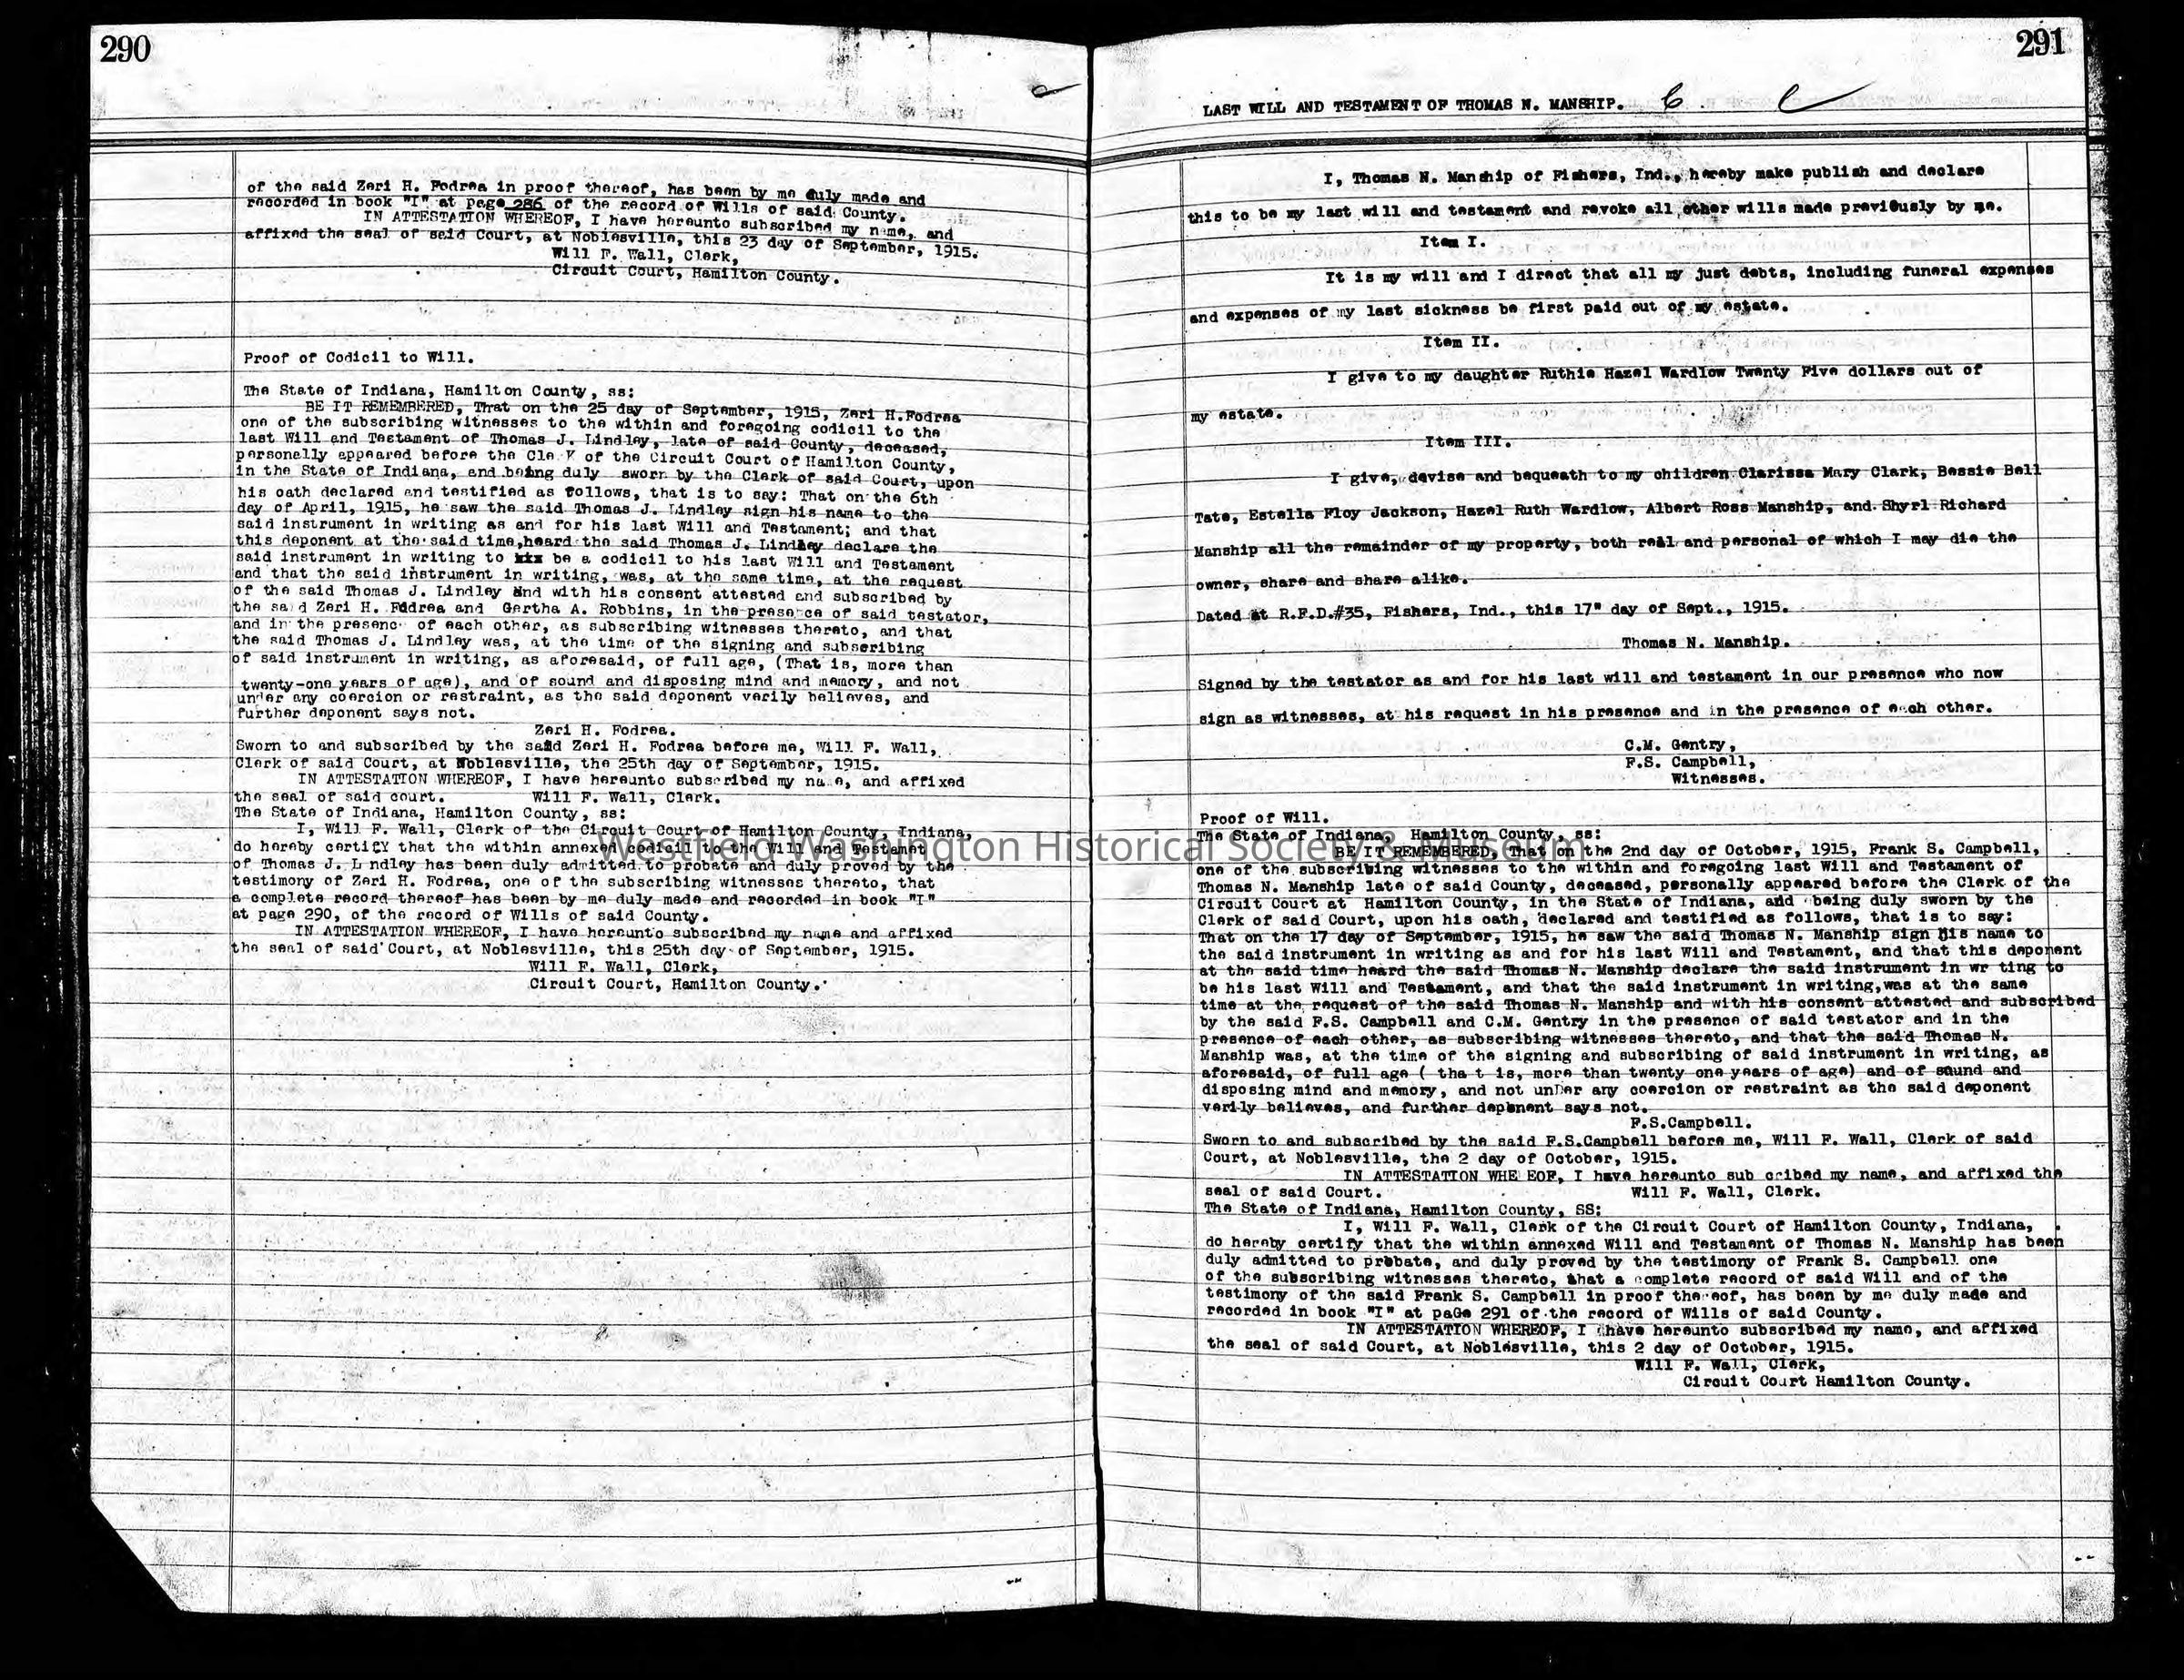 290
of the said Zeri H. Fodrea in proof thereof, has been by me duly made and
recorded in book "I" at page 286 of the record of Wills of said County.
IN ATTESTATION WHEREOF, I have hereunto subscribed my name, and
affixed the seal of said Court, at Noblesville, this 23 day of September, 1915.
Will F. Wall, Clerk,
Circuit Court, Hamilton County.
Proof of Codicil to Will.
The State of Indiana, Hamilton County, ss:
BE IT REMEMBERED, That on the 25 day of September, 1915, Zeri H.Fodrea
one of the subscribing witnesses to the within and foregoing codicil to the
last Will and Testament of Thomas J. Lindley, late of said County, deceased,
personally appeared before the Cle k of the Circuit Court of Hamilton County,
in the State of Indiana, and being duly sworn by the Clerk of said Court, upon
his oath declared and testified as follows, that is to say: That on the 6th
day of April, 1915, he saw the said Thomas J. Lindley sign his name to the
said instrument in writing as and for his last Will and Testament; and that
this deponent at the said time,heard the said Thomas J. Lindley declare the
said instrument in writing to xxx be a codicil to his last Will and Testament
and that the said instrument in writing, was, at the same time, at the request
of the said Thomas J. Lindley and with his consent attested and subscribed by
the said Zeri H. Fodrea and Gertha A. Robbins, in the presence of said testator,
and in the presenc of each other, as subscribing witnesses thereto, and that
the said Thomas J. Lindley was, at the time of the signing and subscribing
of said instrument in writing, as aforesaid, of full age, (That is, more than
twenty-one years of age), and of sound and disposing mind and memory, and not
under any coercion or restraint, as the said deponent verily believes, and
further deponent says not.
Zeri H. Fodrea.
Sworn to and subscribed by the said Zeri H. Fodrea before me, Will F. Wall,
Clerk of said Court, at Noblesville, the 25th day of September, 1915.
IN ATTESTATION WHEREOF, I have hereunto subscribed my name, and affixed
the seal of said court. Will F. Wall, Clerk.
The State of Indiana, Hamilton County, ss:
I, Will F. Wall, Clerk of the Circuit Court of Hamilton County, Indiana,
do hereby certify that the within annexed codicil to the Will and Testamet
of Thomas J. L ndley has been duly admitted to probate and duly proved by the
testimony of Zeri H. Fodrea, one of the subscribing witnesses thereto, that
a complete record thereof has been by me duly made and recorded in book "I"
at page 290, of the record of Wills of said County.
IN ATTESTATION WHEREOF, I have hereunto subscribed my name and affixed
the seal of said Court, at Noblesville, this 25th day of September, 1915.
Will F. Wall, Clerk,
Circuit Court, Hamilton County.
291
LAST WILL AND TESTAMENT OF THOMAS N. MANSHIP.
I, Thomas N. Manship of Fishers, Ind., hereby make publish and declare
this to be my last will and testament and revoke all other wills made previously by me.
Item I.
It is my will and I direct that all my just debts, including funeral expenses
and expenses of my last sickness be first paid out of my estate.
Item II.
I give to my daughter Ruthie Hazel Wardlow Twenty Five dollars out of
my estate.
Item III.
I give, devise and bequeath to my children Clarissa Mary Clark, Bessie Bell
Tate, Estella Floy Jackson, Hazel Ruth Wardlow, Albert Ross Manship, and Shyrl Richard
Manship all the remainder of my property, both reall and personal of which I may die the
owner, share and share alike.
Dated at R.F.D.#35, Fishers, Ind., this 17" day of Sept., 1915.
Thomas N. Manship.
Signed by the testator as and for his last will and testament in our presence who now
sign as witnesses, at his request in his presence and in the presence of each other.
C.M. Gentry,
F.S. Campbell,
Witnesses.
Proof of Will.
The State of Indiana, Hamilton County, ss:
Westfield Washington Historical Society & Museum
BE IT REMEMBERED, That on the 2nd day of October, 1915, Frank S. Campbell,
one of the subscribing witnesses to the within and foregoing last Will and Testament of
Thomas N. Manship late of said County, deceased, personally appeared before the Clerk of the
Circuit Court at Hamilton County, in the State of Indiana, and being duly sworn by the
Clerk of said Court, upon his oath, declared and testified as follows, that is to say:
That on the 17 day of September, 1915, he saw the said Thomas N. Manship sign his name to
the said instrument in writing as and for his last Will and Testament, and that this deponent
at the said time heard the said Thomas N. Manship declare the said instrument in wr ting to
be his last Will and Testament, and that the said instrument in writing,was at the same
time at the request of the said Thomas N. Manship and with his consent attested and subscribed
by the said F.S. Campbell and C.M. Gentry in the presence of said testator and in the
presence of each other, as subscribing witnesses thereto, and that the said Thomas N.
Manship was, at the time of the signing and subscribing of said instrument in writing, as
aforesaid, of full age ( tha t is, more than twenty one years of age) and of sound and
disposing mind and memory, and not under any coercion or restraint as the said deponent
verily believes, and further deponent says not.
F.S.Campbell.
Sworn to and subscribed by the said F.S.Campbell before me, Will F. Wall, Clerk of said
Court, at Noblesville, the 2 day of October, 1915.
IN ATTESTATION WHE EOF, I have hereunto sub cribed my name, and affixed the
seal of said Court. Will F. Wall, Clerk.
The State of Indiana, Hamilton County, SS:
I, Will F. Wall, Clerk of the Circuit Court of Hamilton County, Indiana,
do hereby certify that the within annexed Will and Testament of Thomas N. Manship has been
duly admitted to probate, and duly proved by the testimony of Frank S. Campbell one
of the subscribing witnesses thereto, that a complete record of said Will and of the
testimony of the said Frank S. Campbell in proof thereof, has been by me duly made and
recorded in book "I" at paGe 291 of the record of Wills of said County.
IN ATTESTATION WHEREOF, I have hereunto subscribed my name, and affixed
the seal of said Court, at Noblesville, this 2 day of October, 1915.
Will F. Wall, Clerk,
Circuit Court Hamilton County.